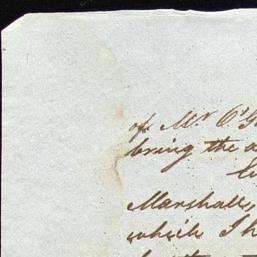 of Mr. O'G
bring the a
Marshall,
which I h